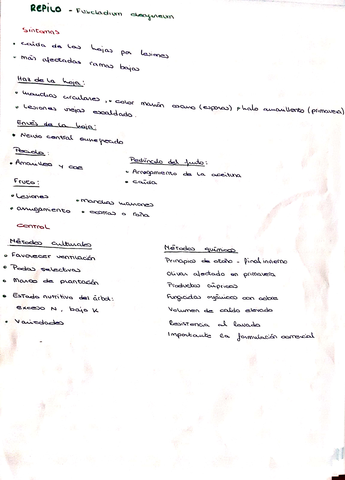 REPILO - Fusicladium oleagineum
Síntomas
• caída de las hojas por lesiones
• más afectadas ramas bajas
Haz de la hoja:
• manchas circulares, • color marrón oscuro (esporas) + halo amarillento (primavera)
• Lesiones viejas escaldado.
Envés de la hoja:
• Nervio central ennegrecido
Peciolo:
• Amarillea y cae
Pedúnculo del fruto:
• Arrugamiento de la aceituna
• caída
Fruto:
• Lesiones • manchas marrones
• arrugamiento • costras o roña
Control
Métodos culturales
• Favorecer ventilación
• Podas selectivas
• Marco de plantación
• Estado nutritivo del árbol:
exceso N, bajo K
• Variedades
Métodos químicos
Principio de otoño - final invierno
Olivar afectado en primavera
Productos cúpricos
Fungicidas orgánicos con cobre
Volumen de caldo elevado
Resistencia al lavado
Importante la formulación comercial